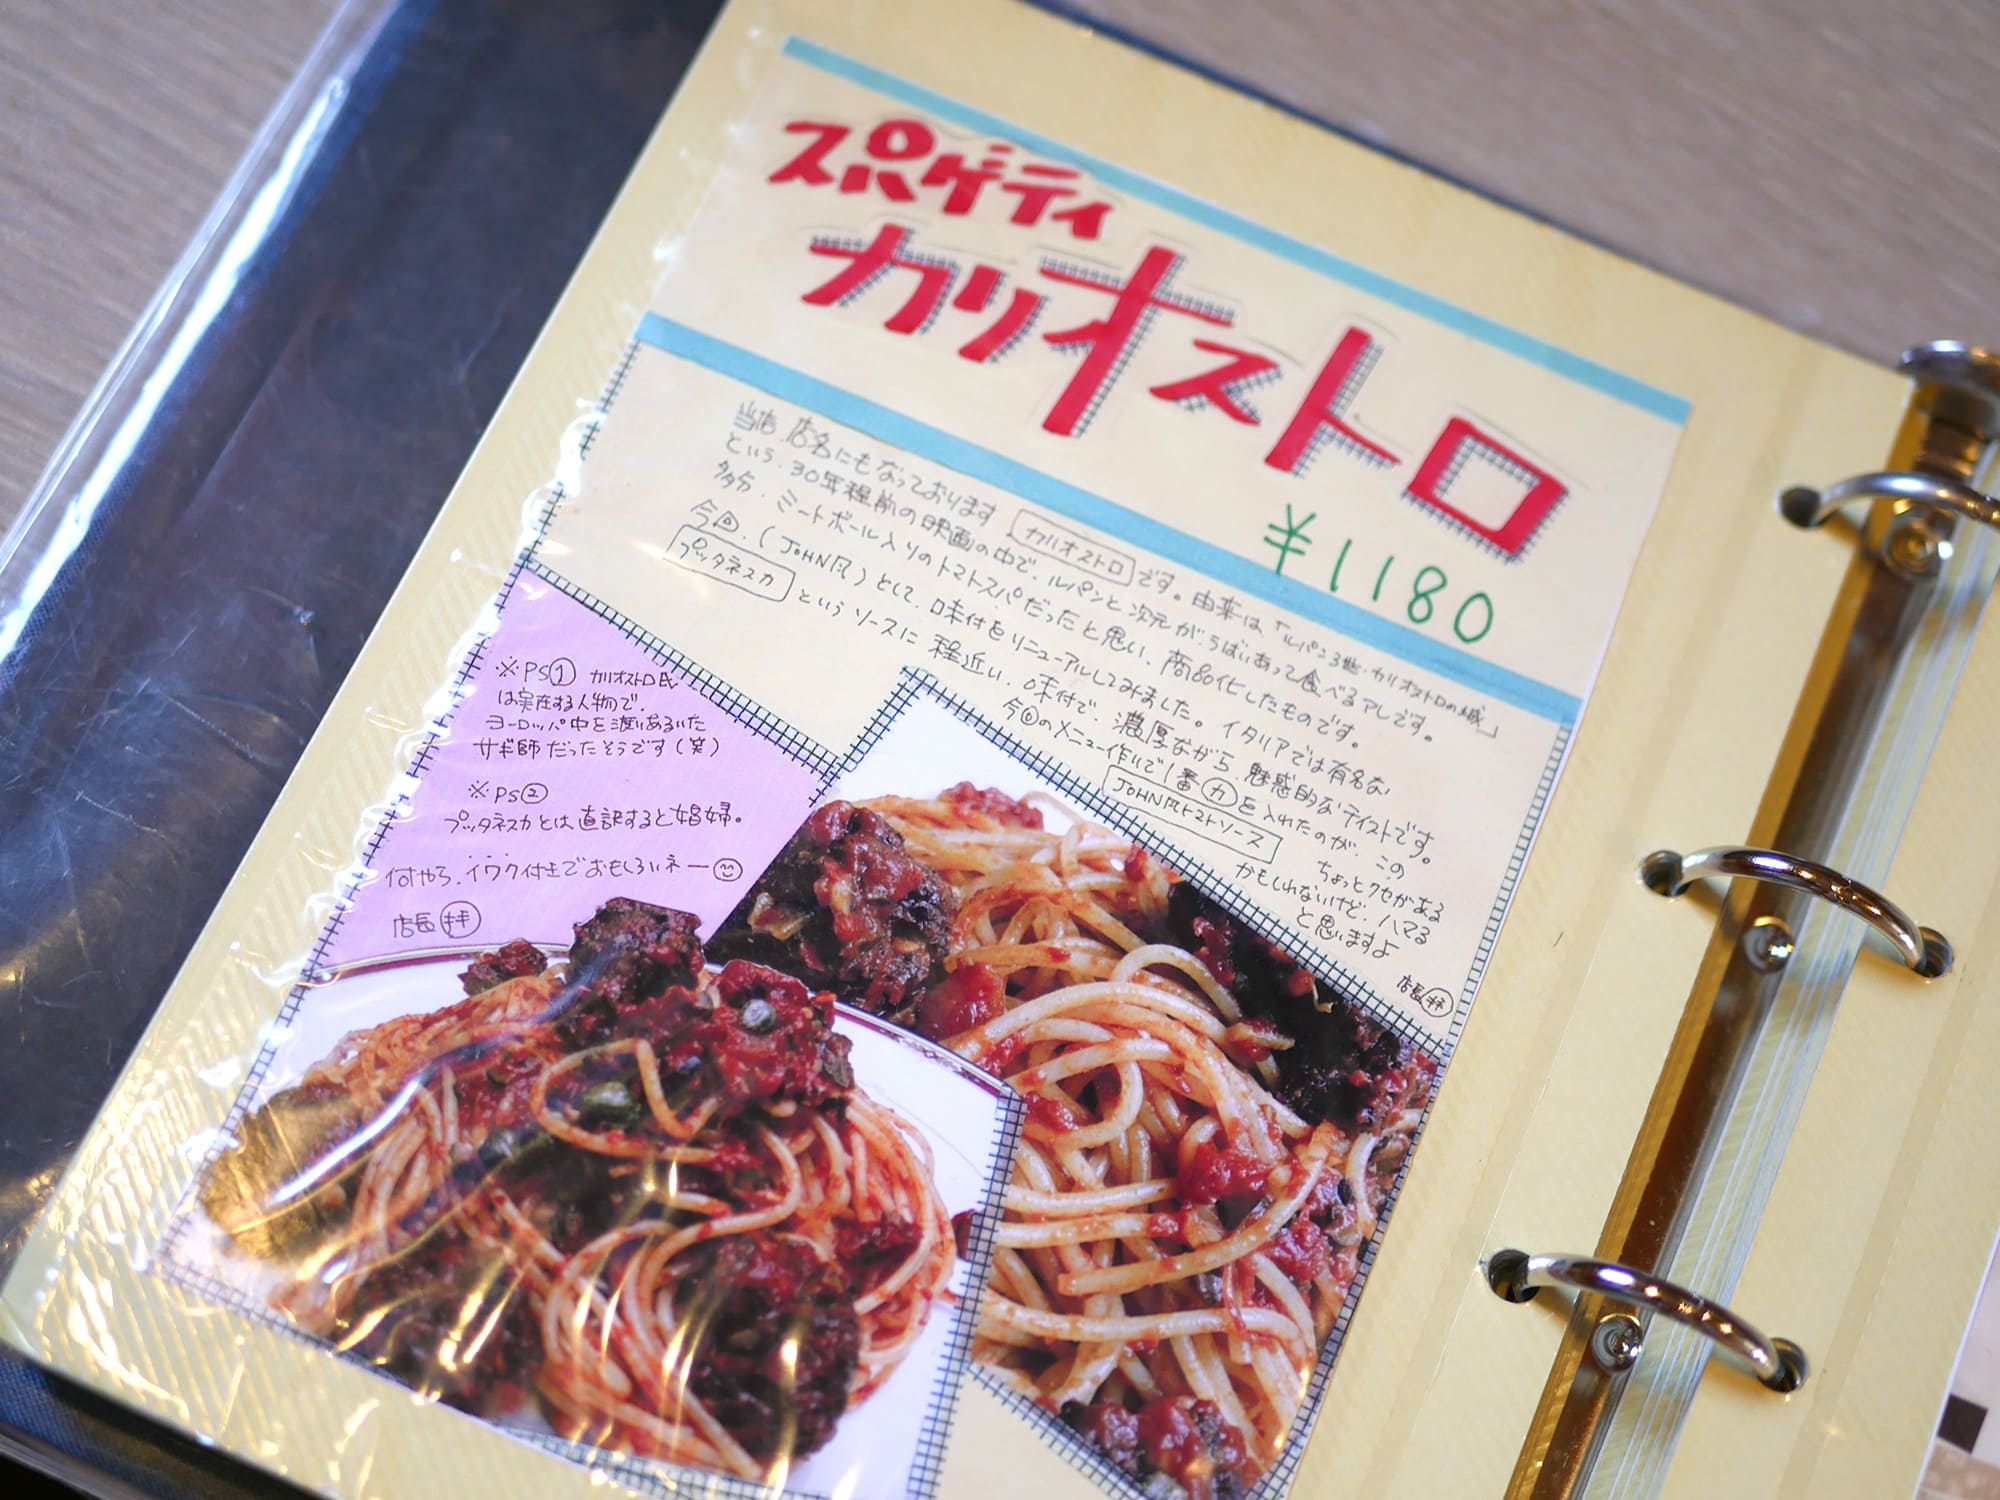 スパゲティ
カリオストロ
¥1180
当店、店名にもなっております カリオストロ です。由来は「ルパン3世・カリオストロの城」
という、30年程前の映画の中で、ルパンと次元がうばいあって食べるアレです。
多分、ミートボール入りのトマトスパだったと思い、商品化したものです。
今回、(JOHN風)として、味付をリニューアルしてみました。イタリアでは有名な
プッタネスカ というソースに程近い、味付で、濃厚ながら、魅惑的なテイストです。
今回のメニュー作りで1番力を入れたのが、この
JOHN風トマトソース ちょっとクセがある
かもしれないけど、ハマる
と思いますよ
店長拝
※PS① カリオストロ氏
は実在する人物で、
ヨーロッパ中を渡りあるいた
サギ師だったそうです(笑)
※PS②
プッタネスカとは直訳すると娼婦。
何やら、イワク付きでおもしろいネー
店長拝